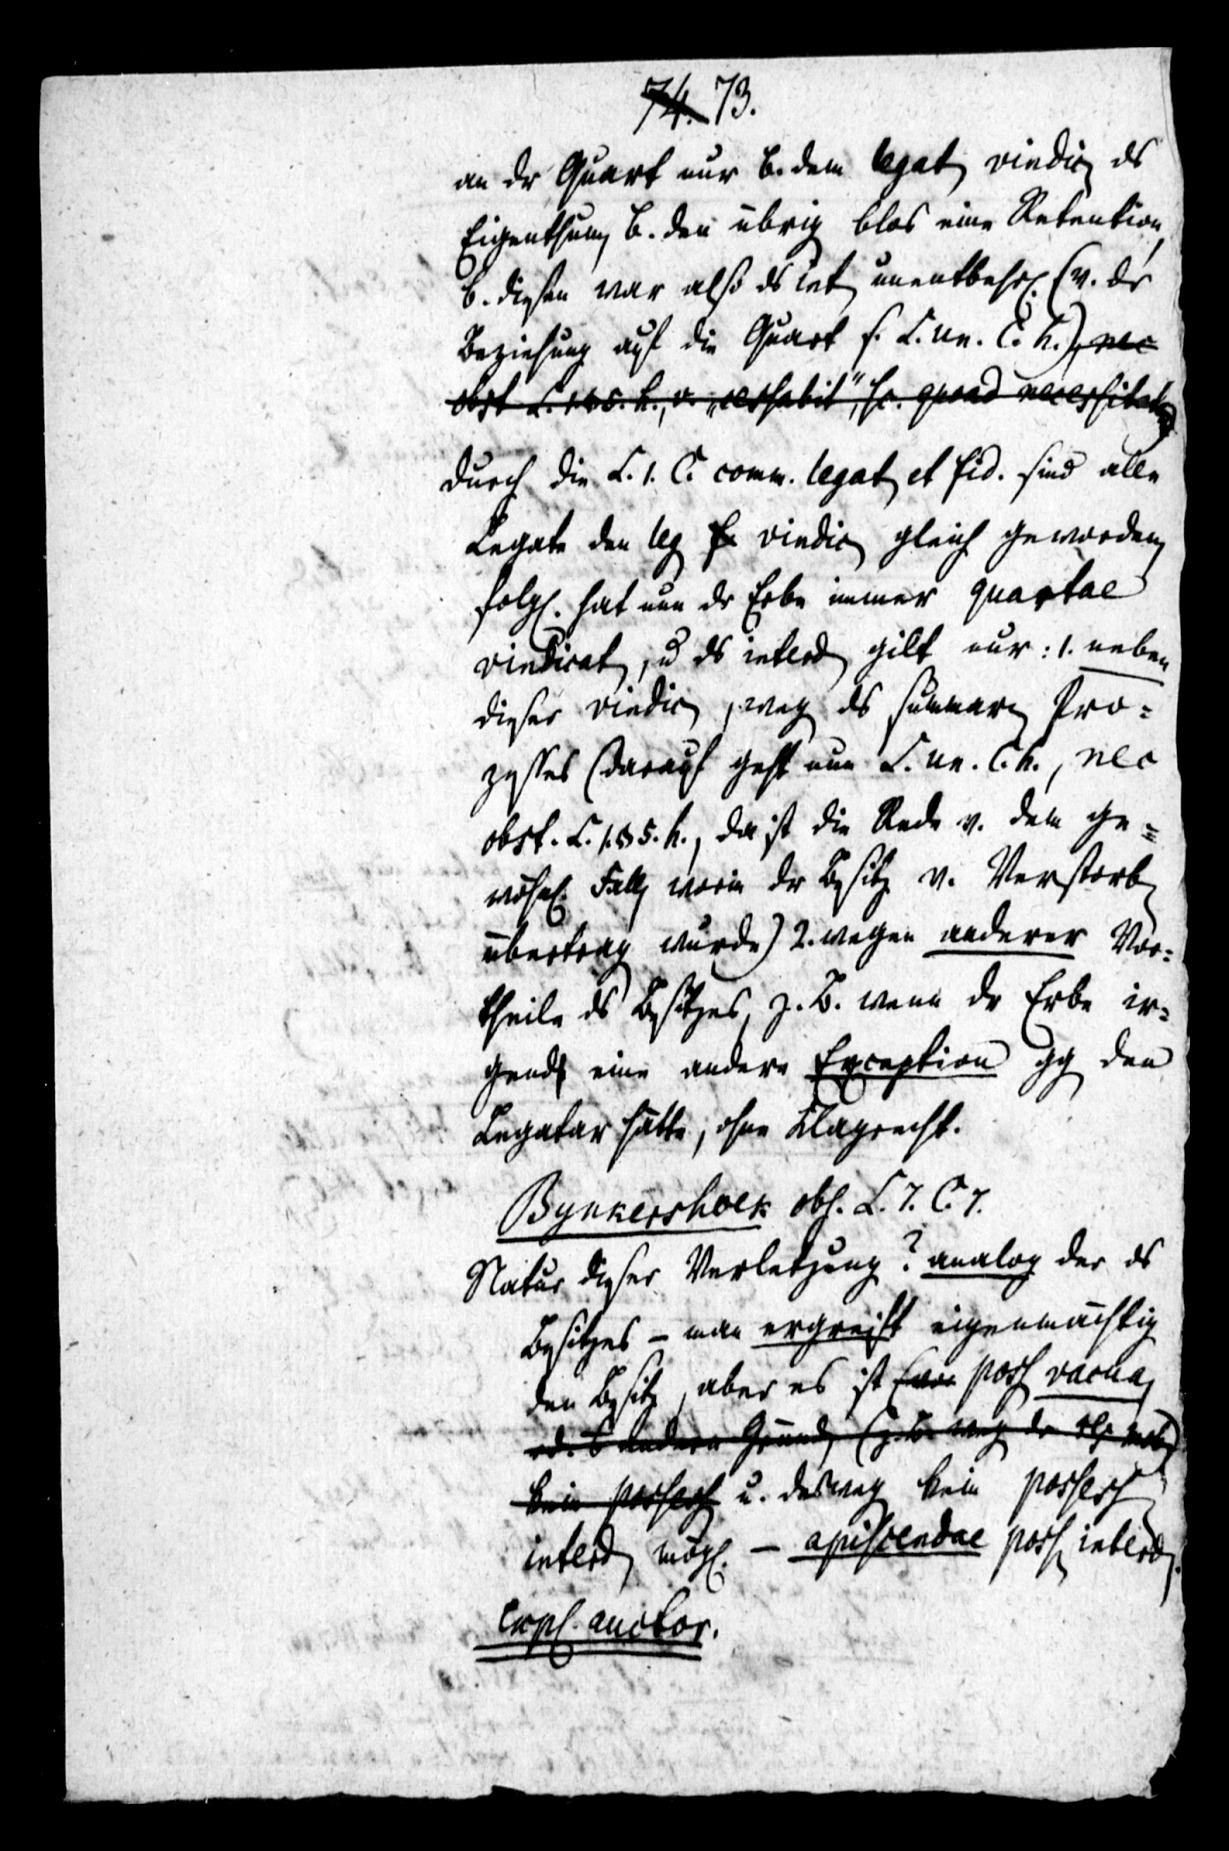 74. 73.
an dr Quart nur b. dem legat vindic ds
Eigenthum, b. den übrig blos eine Retention,
b. diesen war also ds int unentbehrl. (v. dr
Beziehung auf die Quart s. L. un. C. h.), nec
obst L. 1. §5. h., v. „ sc. quoad necessitat
durch die L. 1. C. comm. legat et fid. sind alle
Legate den leg vindic gleich geworden,
folgl. hat nun dr Erbe immer quartae
vindicat, u ds interd gilt nur: 1. neben
dieser vindic, weg ds summar Pro=
zesses (darauf geht nun L. un. C. h., nec
obst. L. 1. §5. h., da ist die Rede v. dem ge=
wöhnl. Fall, worin dr Besitz v. Verstorb
übertrag wurde) 2. wegen anderer Vor=
theile ds Besitzes, z. B. wenn dr Erbe ir=
gend eine andere Exception gg den
Legatar hätte, ohne Klagrecht.
Bynkershoek obs. L. 7. C. 7.
Natur dieser Verletzung? analog der ds
Besitzes – man ergreift eigenmächtig
den Besitz, aber es ist poss vacua,
od. andern Gründ (z. B. weg dr
kein possess u. desweg kein possess
interd mögl. – apiscendae poss interd.
auctor.